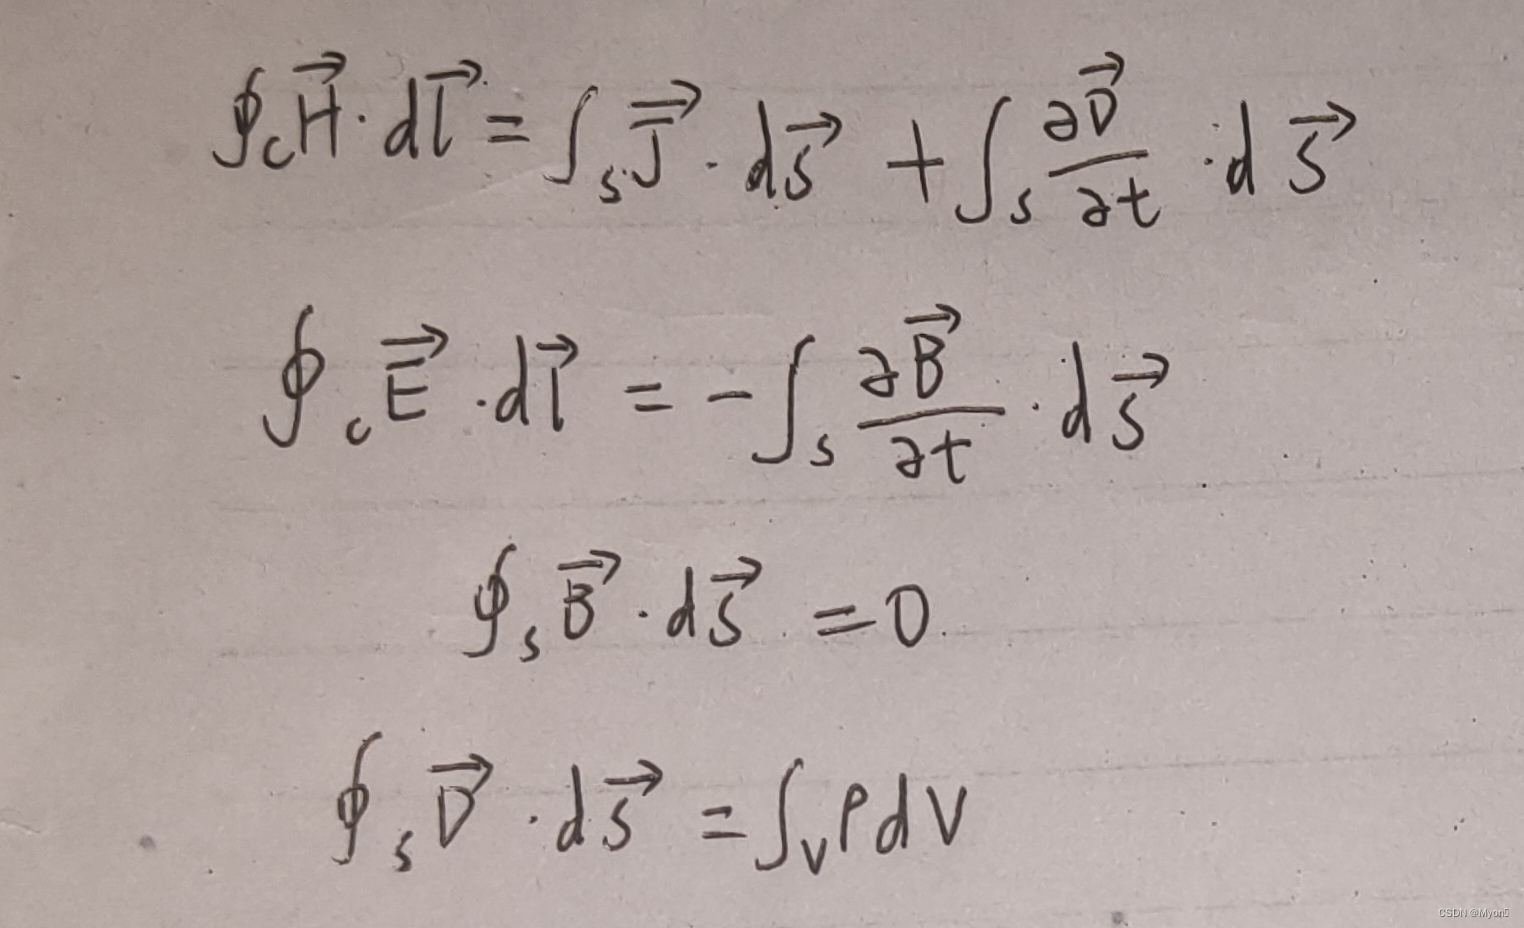 ∮_C H⃗ · dl⃗ = ∫_S J⃗ · dS⃗ + ∫_S ∂D⃗/∂t · dS⃗
∮_C E⃗ · dl⃗ = -∫_S ∂B⃗/∂t · dS⃗
∮_S B⃗ · dS⃗ = 0
∮_S D⃗ · dS⃗ = ∫_V ρ dV
CSDN @Myon